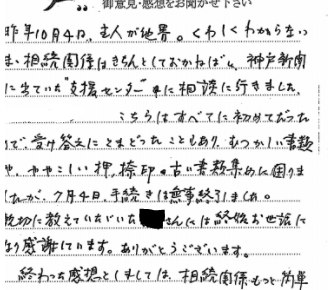 御意見・感想をお聞かせ下さい
昨年10月4日、主人が他界。くわしくわからない
ま、相続関係はきちんとしておかねばと、神戸新聞
に出ていた"支援センター"に相談に行きました。
こちらはすべてに初めてだった
ので、受け答えにとまどったこともあり、むつかしい書類
や、ややこしい押、捺印。古い書類集めに困りま
したが、7月4日、手続きは無事終了しました。
親切に教えていただいた さんには終始お世話に
なり感謝しています。ありがとうございます。
終わった感想としましては、相続関係もっと簡単